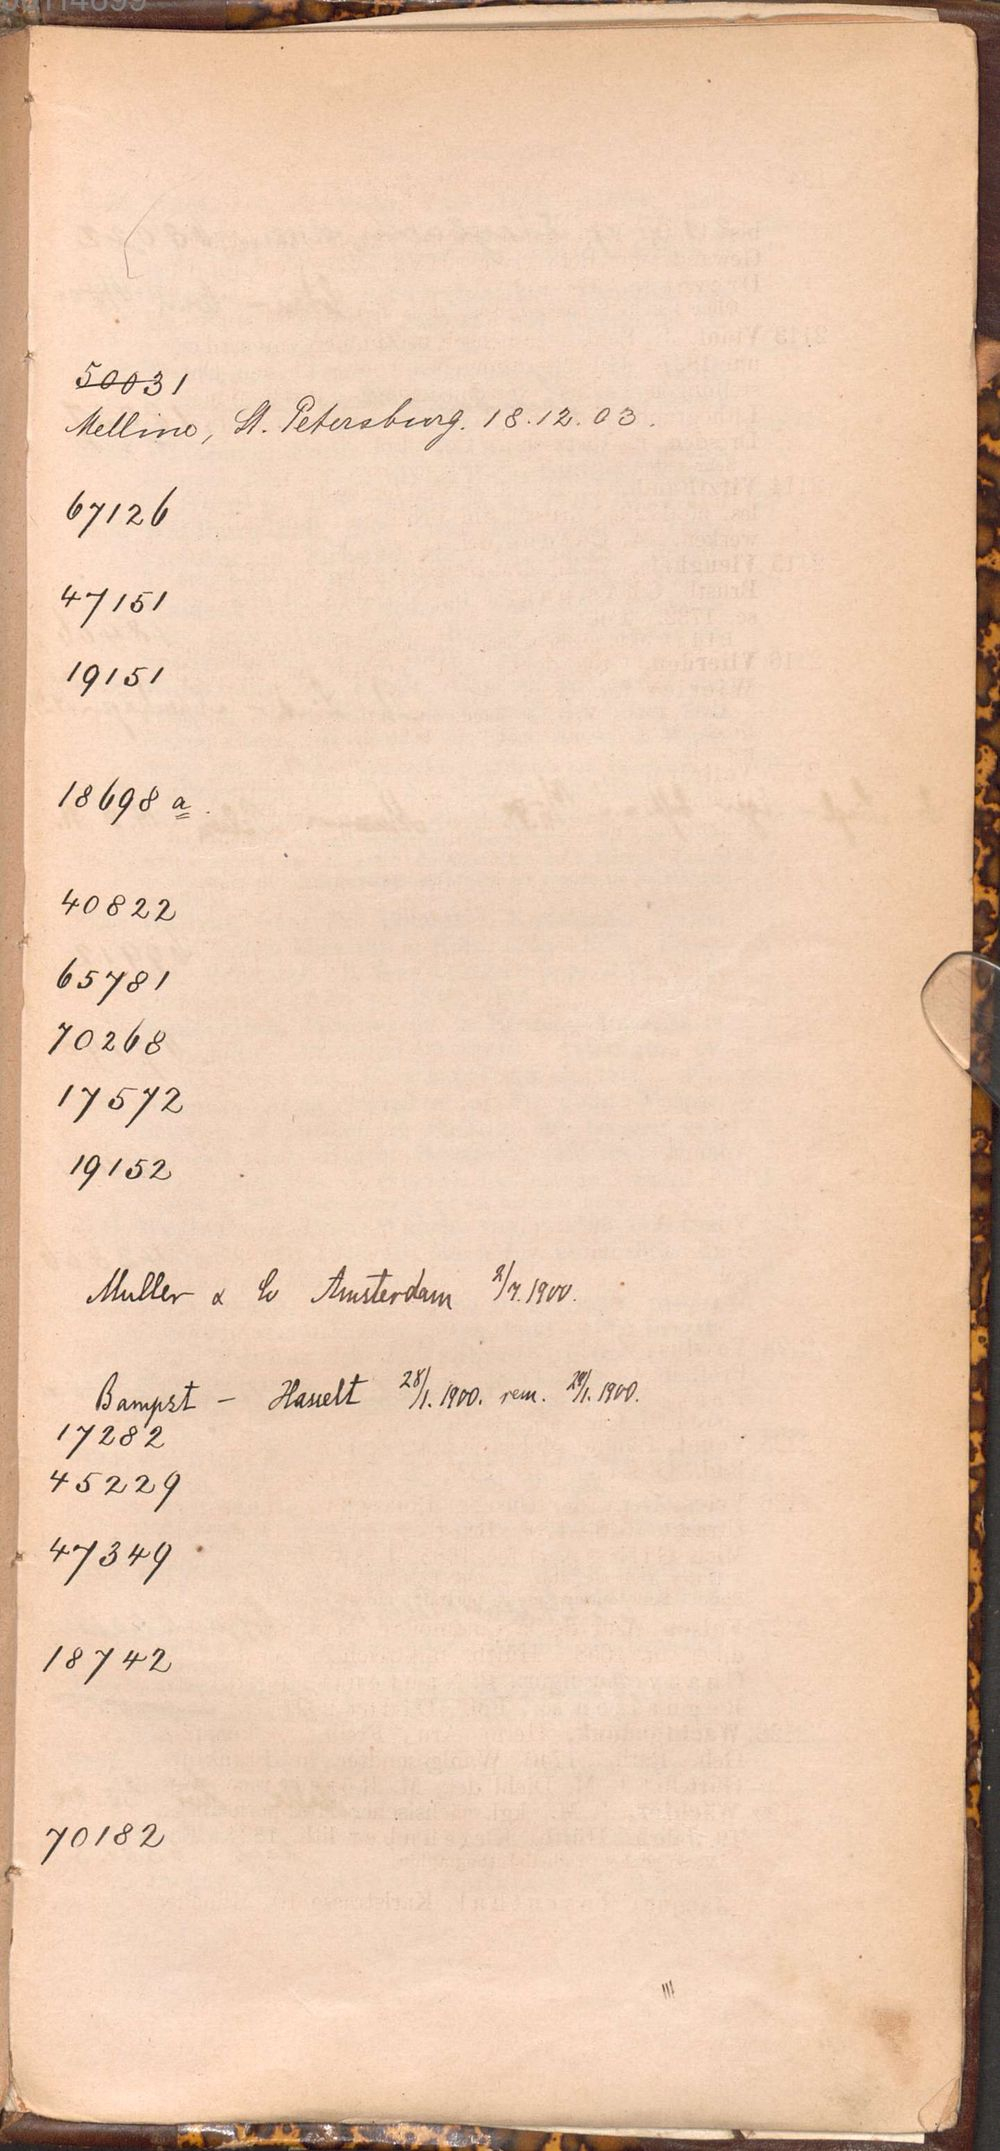 50031
Mellino, St. Petersburg. 18.12.03.
67126
47151
19151
18698 a.
40822
65781
70268
17572
19152
Muller & Co Amsterdam 2/7.1900.
Bampst – Hasselt 28/1.1900. rem. 29/1.1900.
17282
45229
47349
18742
70182